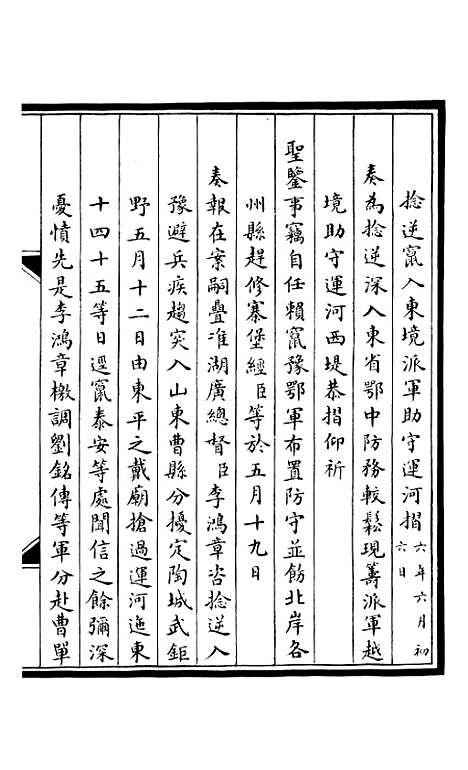 捻逆竄入東境派軍助守運河摺六年六月初六日
奏為捻逆深入東省鄂中防務較鬆現籌派軍越
境助守運河西堤恭摺仰祈
聖鑒事竊自任賴竄豫鄂軍布置防守並飭北岸各
州縣趕修寨堡經臣等於五月十九日
奏報在案嗣疊准湖廣總督臣李鴻章咨捻逆入
豫避兵疾趨突入山東曹縣分擾定陶城武鉅
野五月十二日由東平之戴廟搶過運河迤東
十四十五等日遝竄泰安等處聞信之餘彌深
憂憤先是李鴻章檄調劉銘傳等軍分赴曹單